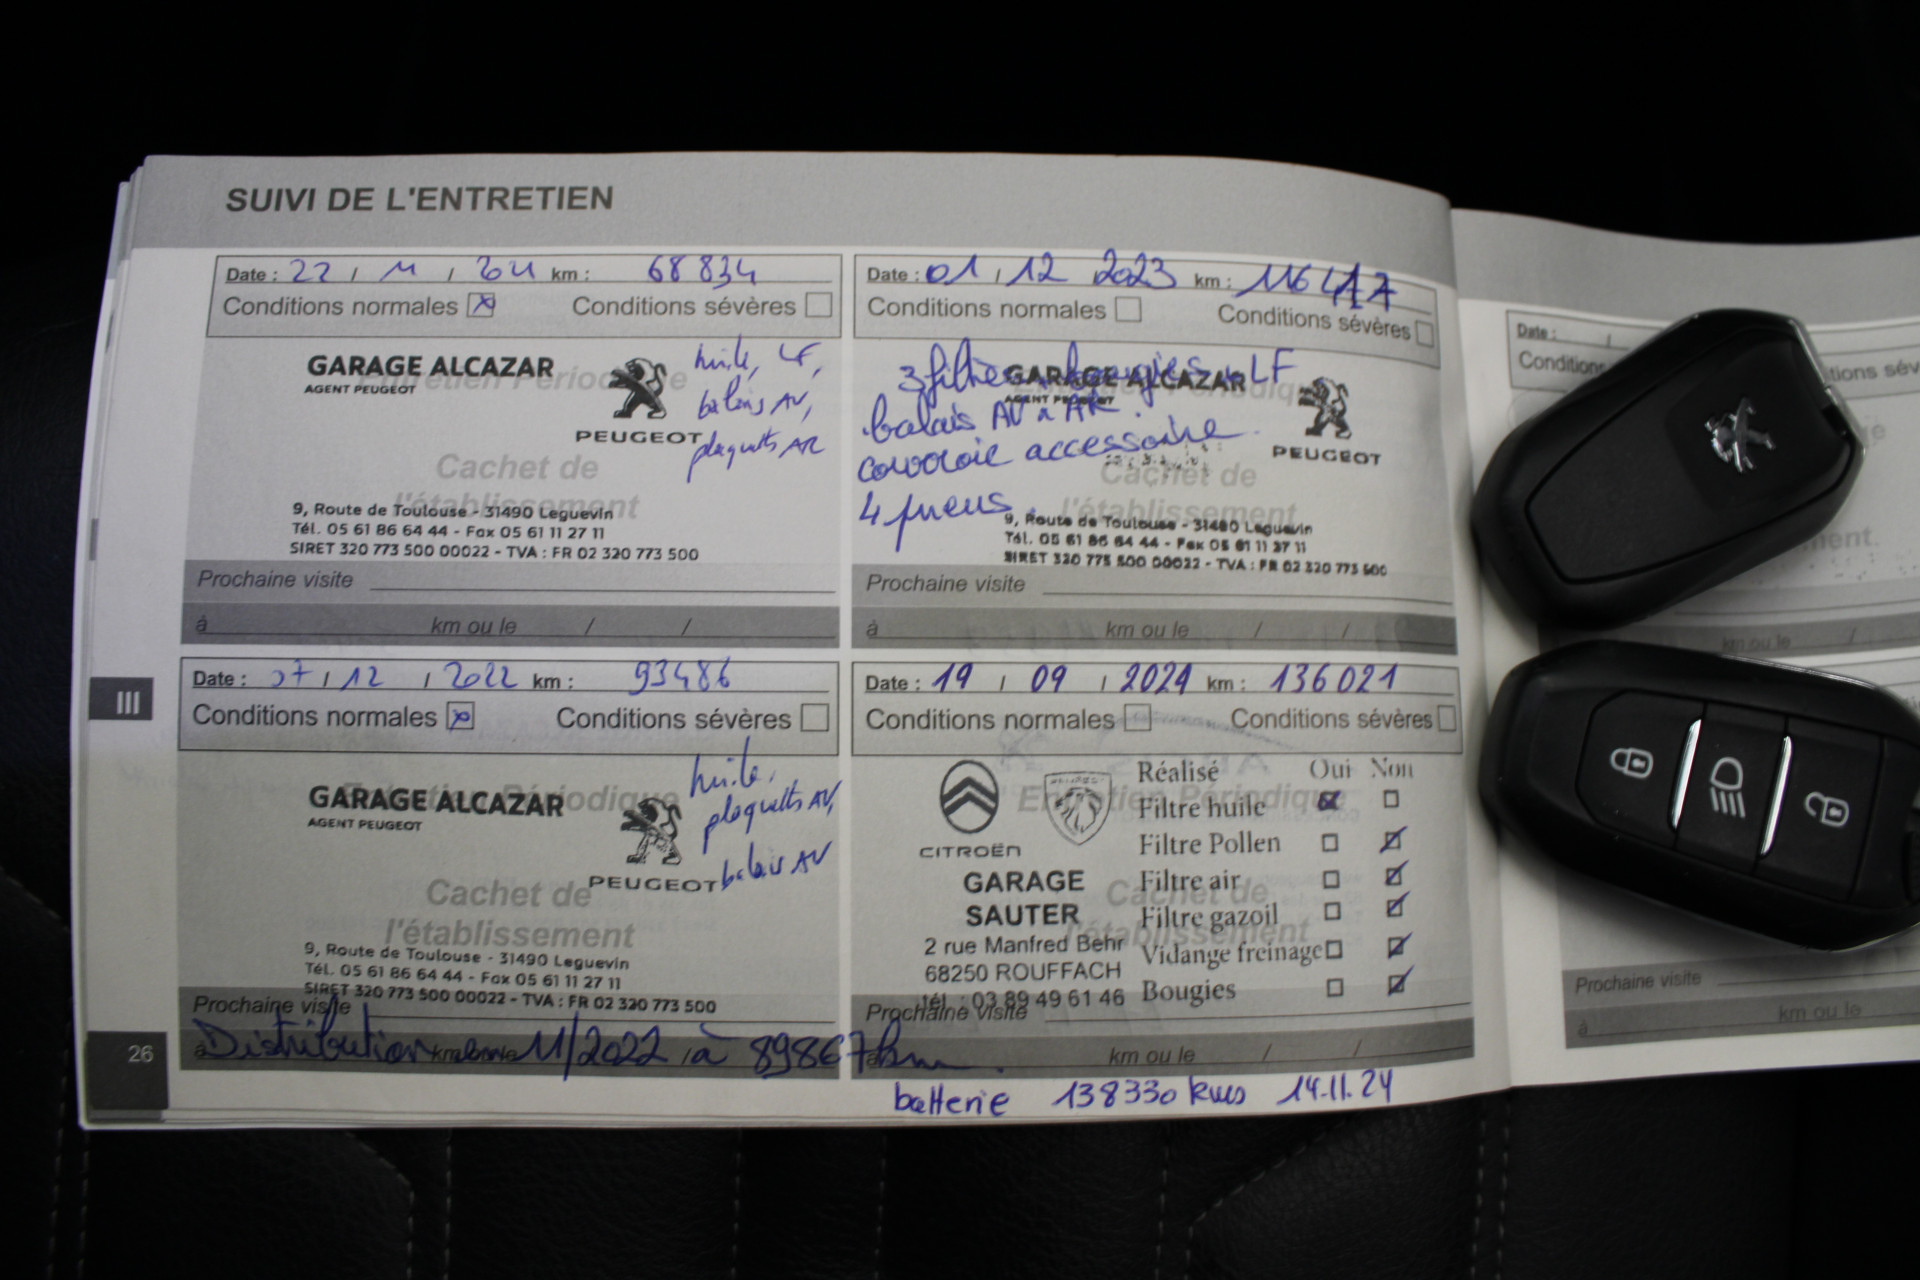 SUIVI DE L'ENTRETIEN
Date : 22 / 11 / km : 68 834
Conditions normales x Conditions sévères
Entretien Périodique
GARAGE ALCAZAR
AGENT PEUGEOT
PEUGEOT
huile, LF,
balais AV,
plaquetts AR
Cachet de
l'établissement
9, Route de Toulouse - 31490 Leguevin
Tél. 05 61 86 64 44 - Fax 05 61 11 27 11
SIRET 320 773 500 00022 - TVA : FR 02 320 773 500
Prochaine visite
à km ou le / /
Date : 01 / 12 2023 km :
Conditions normales Conditions sévères
Entretien Périodique
3 filtres bougies LF
GARAGE ALCAZAR
AGENT PEUGEOT
balais AV AR.
PEUGEOT
courroie accessoire
Cachet de
l'établissement
4 pneus.
9, Route de Toulouse - 31490 Leguevin
Tél. 05 61 86 64 44 - Fax 05 61 11 27 11
SIRET 320 773 500 00022 - TVA : FR 02 320 773 500
Prochaine visite
à km ou le / /
Date : 07 / 12 / 2022 km : 93486
Conditions normales x Conditions sévères
Entretien Périodique
GARAGE ALCAZAR
AGENT PEUGEOT
PEUGEOT
huile,
plaquetts AV,
balais AV
Cachet de
l'établissement
9, Route de Toulouse - 31490 Leguevin
Tél. 05 61 86 64 44 - Fax 05 61 11 27 11
SIRET 320 773 500 00022 - TVA : FR 02 320 773 500
Prochaine visite
Distribution en 11/2022 à 89867 km.
Date : 19 / 09 / 2024 km : 136 021
Conditions normales Conditions sévères
Entretien Périodique
Cachet de
l'établissement
CITROËN
GARAGE
SAUTER
2 rue Manfred Behr
68250 ROUFFACH
tél. : 03 89 49 61 46
Réalisé Oui Non
Filtre huile
Filtre Pollen
Filtre air
Filtre gazoil
Vidange freinage
Bougies
Prochaine visite
à km ou le / /
batterie 138330 kms 14.11.24
III
26
Date : /
Prochaine visite
à km ou le